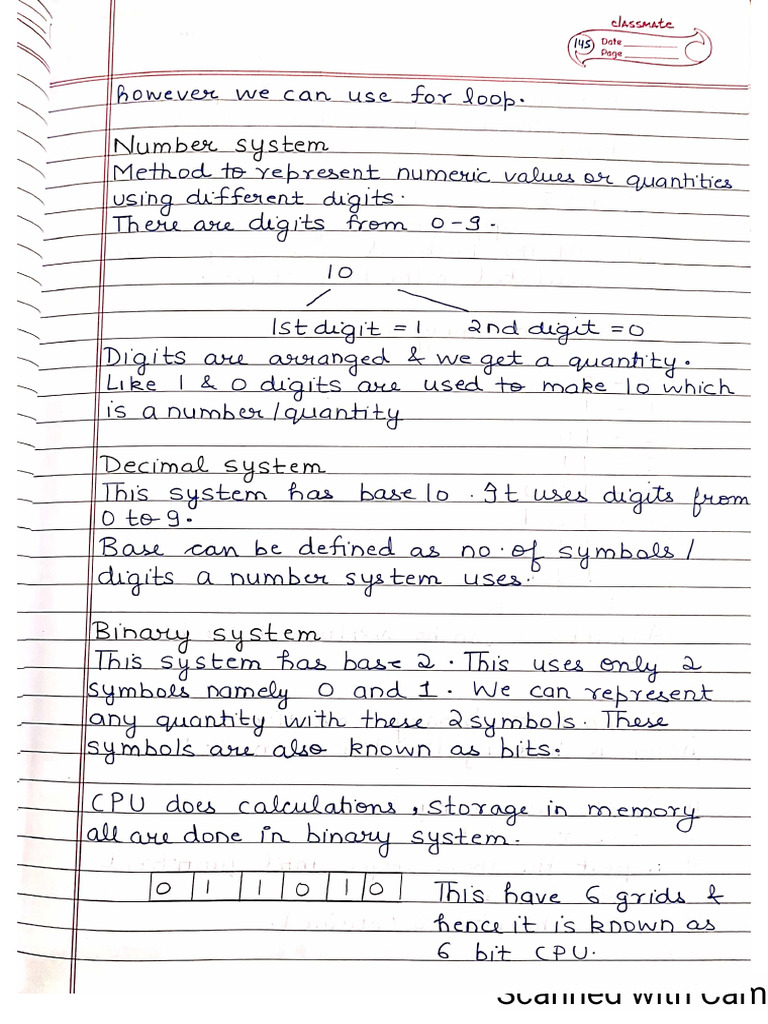 classmate
145
Date
Page
however we can use for loop.
Number system
Method to represent numeric values or quantities
using different digits.
There are digits from 0-9.
10
1st digit = 1 2nd digit = 0
Digits are arranged & we get a quantity.
Like 1 & 0 digits are used to make 10 which
is a number/quantity
Decimal system
This system has base 10. It uses digits from
0 to 9.
Base can be defined as no. of symbols/
digits a number system uses.
Binary system
This system has base 2. This uses only 2
symbols namely 0 and 1. We can represent
any quantity with these 2 symbols. These
symbols are also known as bits.
CPU does calculations, storage in memory
all are done in binary system.
0 1 1 0 1 0 This have 6 grids &
hence it is known as
6 bit CPU.
Scanned with Cam